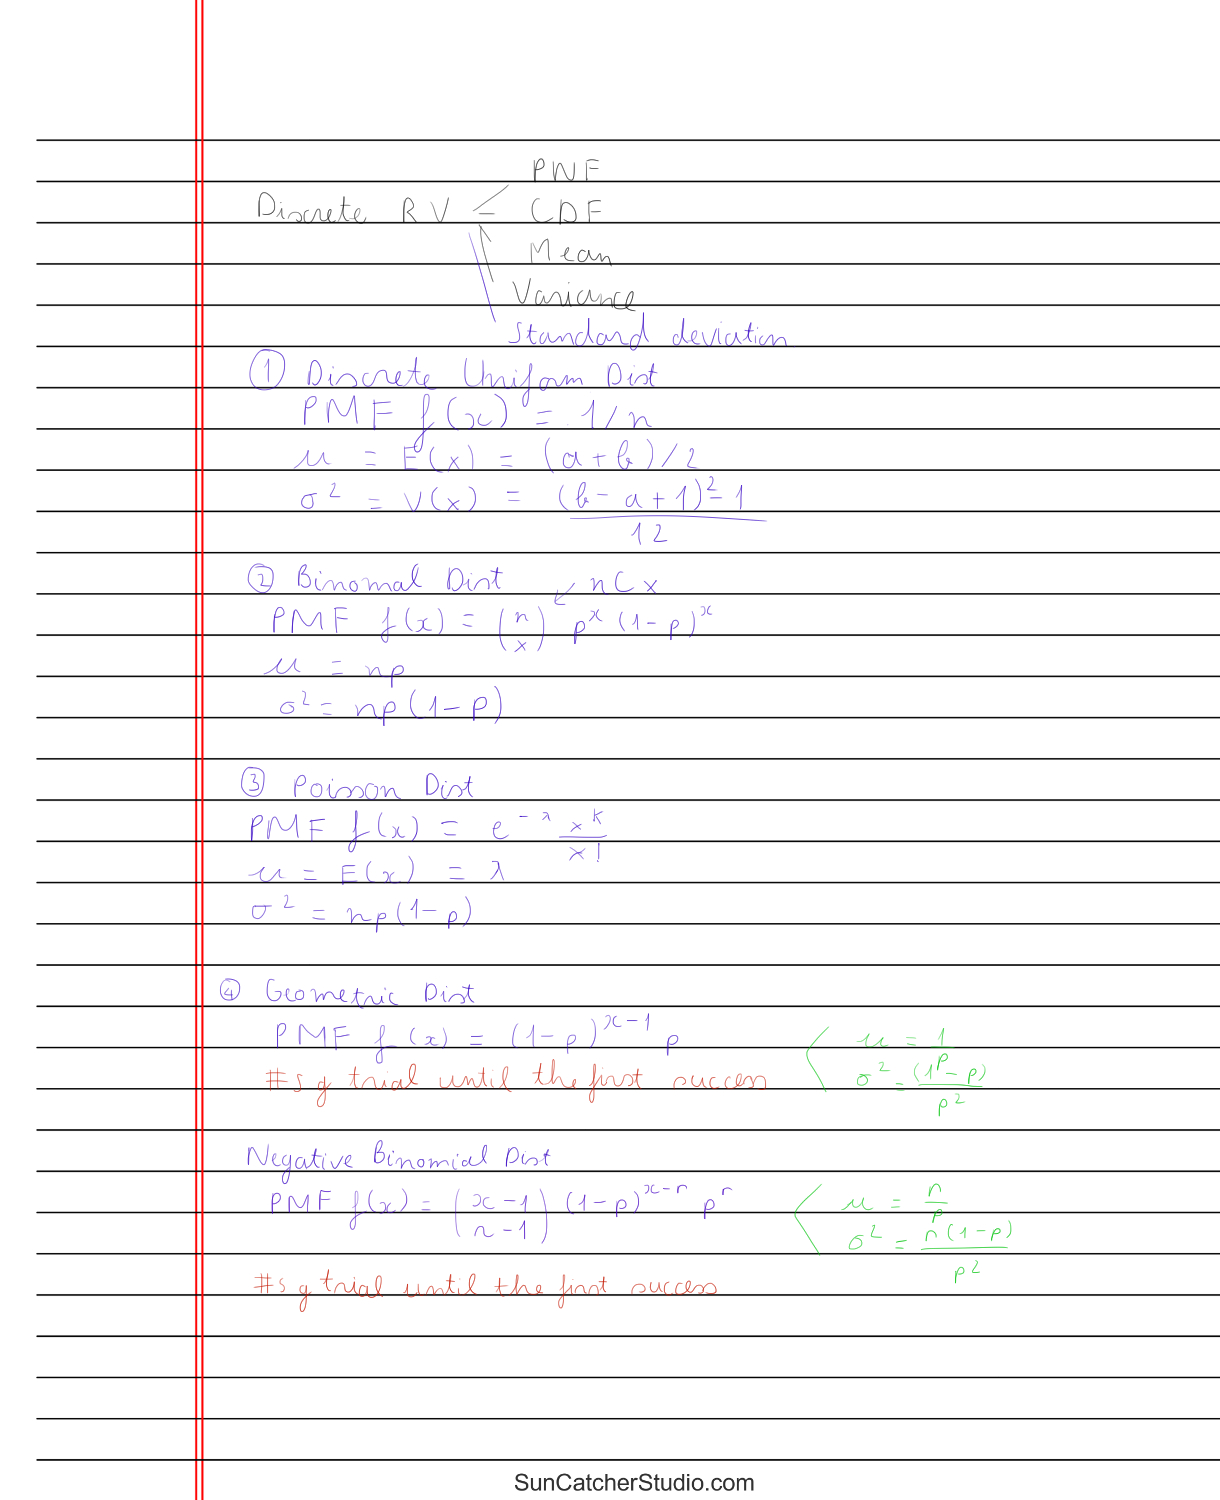 PWF
Discrete RV CDF
Mean
Variance
Standard deviation
① Discrete Uniform Dist
PMF f(x) = 1/n
μ = E(x) = (a+b)/2
σ² = V(x) = (b-a+1)²-1
12
② Binomal Dist ↙ nCx
PMF f(x) = (n x) p^x (1-p)^x
μ = np
σ² = np(1-p)
③ Poisson Dist
PMF f(x) = e^-λ x^k
x!
μ = E(x) = λ
σ² = np(1-p)
④ Geometric Dist
PMF f(x) = (1-p)^x-1 p
#s g trial until the first success
μ = 1
p
σ² = (1-p)
p²
Negative Binomial Dist
PMF f(x) = (x-1 r-1) (1-p)^x-r p^r
μ = r
p
σ² = r(1-p)
p²
#s g trial until the first success
SunCatcherStudio.com